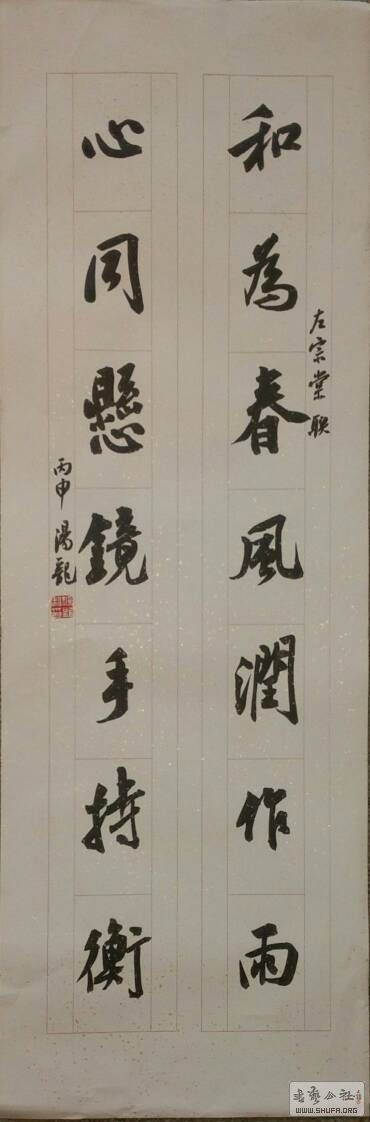 左宗棠联
和為春風潤作雨
心同懸鏡手持衡
丙申 湯龍
WWW.SHUFA.ORG